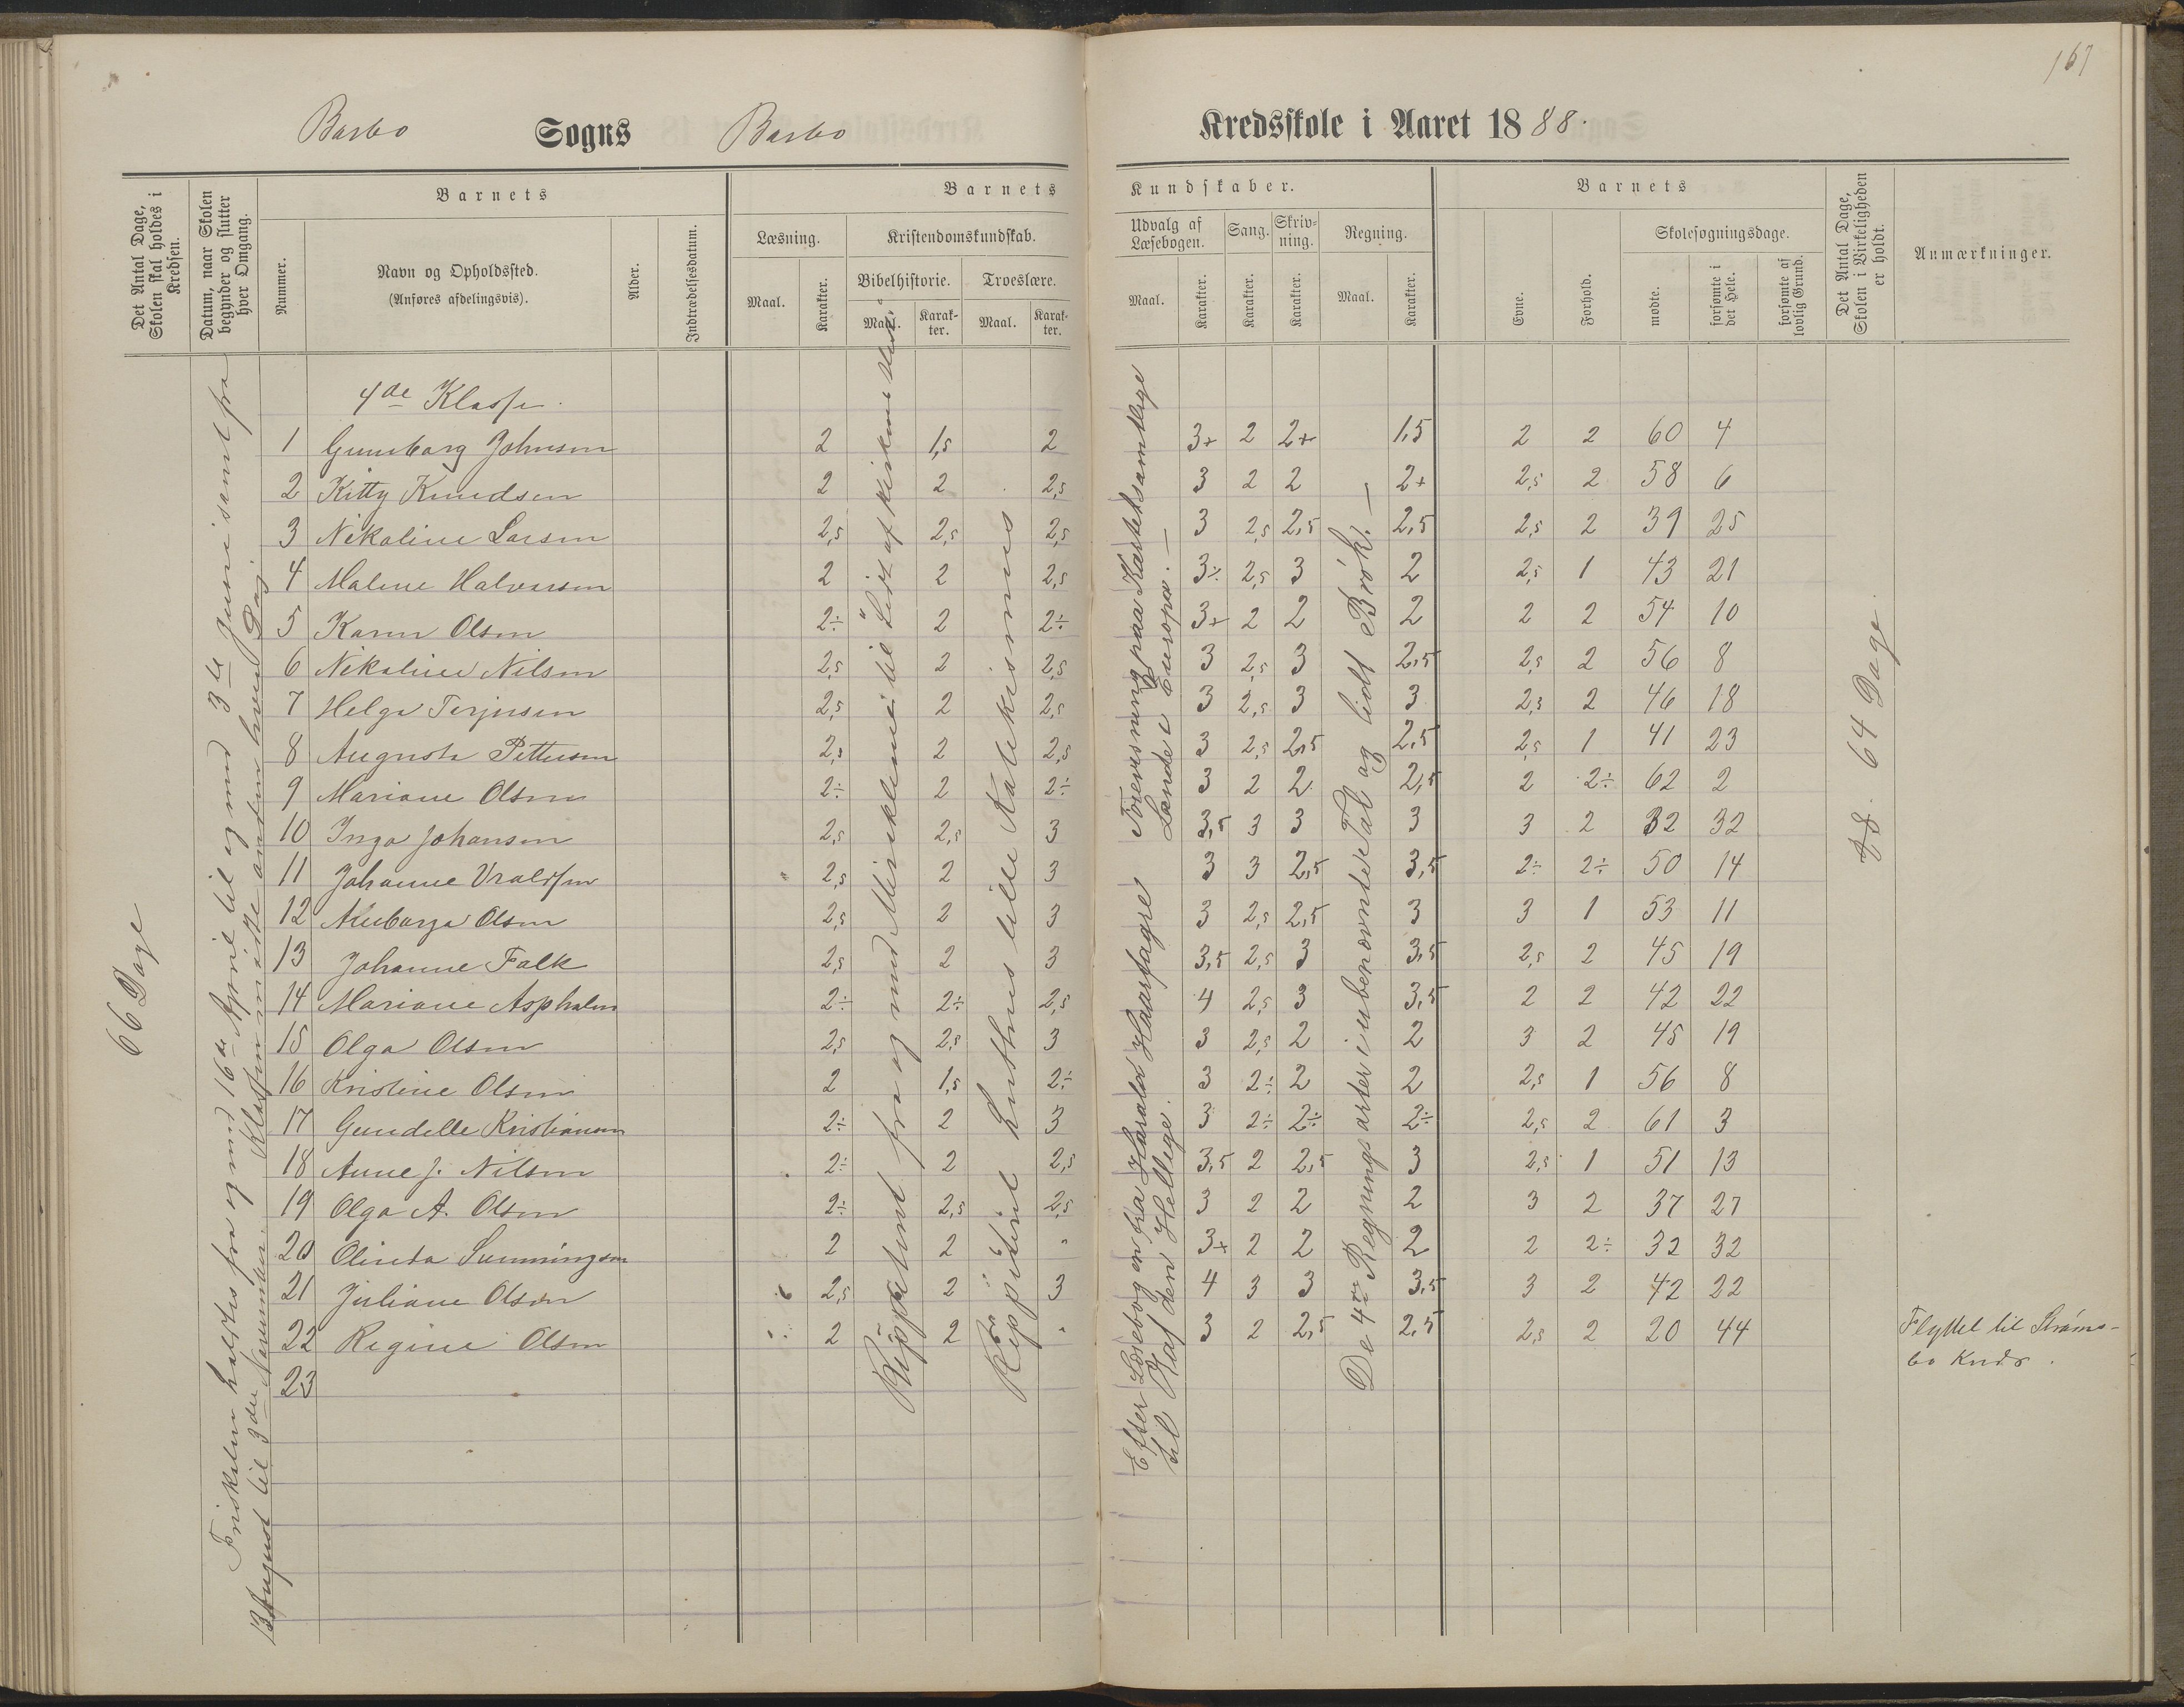 167
Barbo Sogns Barbo Kredsskole i Aaret 1888.
Det Antal Dage, Skolen skal holdes i Kredsen.
Datum, naar Skolen begynder og slutter hver Omgang.
Barnets
Nummer.
Navn og Opholdssted.
(Anføres afdelingsvis).
Alder.
Indtrædelsesdatum.
Barnets Kundskaber.
Læsning.
Maal.
Karakter.
Kristendomskundskab.
Bibelhistorie.
Maal.
Karakter.
Troeslære.
Maal.
Karakter.
Udvalg af Læsebogen.
Maal.
Karakter.
Sang.
Karakter.
Skrivning.
Karakter.
Regning.
Maal.
Karakter.
Barnets
Evne.
Forhold.
Skolesøgningsdage.
mødte.
forsømte i det Hele.
forsømte af lovlig Grund.
Det Antal Dage, Skolen i Virkeligheden er holdt.
Anmærkninger.
66 Dage
fra og med 16de April til og med 3die Juni samt fra
13 August til 3die November. Klassen møtte anden hver Dag
4de Klasse.
1 Gunborg Johnsen 2 1,5 2 3+ 2 2+ 1,5 2 2 60 4
2 Kitty Knudsen 2 2 2,5 3 2 2 2+ 2,5 2 58 6
3 Nikoline Larsen 2,5 2,5 2,5 3 2,5 2,5 2,5 2,5 2 39 25
4 Malene Halvorsen 2 2 2,5 3÷ 2,5 3 2 2,5 1 43 21
5 Karen Olsen 2÷ 2 2÷ 3+ 2 2 2 2 2 54 10
6 Nikoline Nilsen 2,5 2 2,5 3 2,5 3 2,5 2,5 2 56 8
7 Helga Terjesen 2,5 2 2,5 3 2,5 3 3 2,5 2 46 18
8 Augusta Pettersen 2,5 2 2,5 3 2,5 2,5 2,5 2,5 1 41 23
9 Mariane Olsen 2÷ 2 2÷ 3 2 2 2,5 2 2÷ 62 2
10 Inga Johansen 2,5 2,5 3 3,5 3 3 3 3 2 32 32
11 Johanne Vraldsen 2,5 2 3 3 3 2,5 3,5 2÷ 2÷ 50 14
12 Olsen 2,5 2 3 3 2,5 2,5 3 3 1 53 11
13 Johanne Falk 2,5 2 3 3,5 2,5 3 3,5 2,5 2 45 19
14 Mariane Aspholm 2÷ 2÷ 2,5 4 2,5 3 3,5 2 2 42 22
15 Olga Olsen 2,5 2,5 3 3 2,5 2 2 3 2 45 19
16 Kristine Olsen 2 1,5 2÷ 3 2÷ 2 2 2,5 1 56 8
17 Gundelle Kristiansen 2÷ 2 3 3 2÷ 2÷ 2÷ 2,5 2 61 3
18 Anne J. Nilsen 2÷ 2 2,5 3,5 2 2,5 3 2,5 1 51 13
19 Olga A. Olsen 2÷ 2,5 2,5 3 2 2 2 3 2 37 27
20 Olinda 2 2 " 3+ 2 2 2 2 2÷ 32 32
21 Juliane Olsen 2,5 2 3 4 3 3 3,5 3 2 42 22
22 Regine Olsen 2 2 " 3 2 2,5 2,5 2,5 2 20 44
23
Reppetert fra og med Miraklerne til Lidt af Kirkens
Reppetert Luthers lille Katekismus
Efter Læsebogen fra Harald Haarfagre
til Olaf den Hellige.
Forevisning paa Kartet samtlige
Lande i Europa. —
De 4re Regningsarter i ubenævnte Tal og lidt Brøk. —
64 Dage.
Flyttet til Strøms-
bo Kreds.